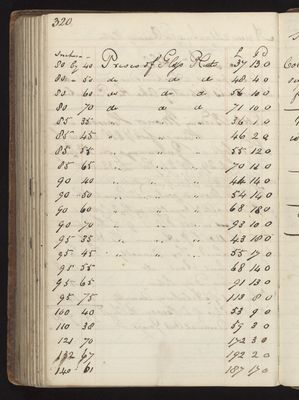 320.
Inches £ s d
80 by 40 Prices of Glass Plate 37 13 0
80 - 50 do do do 48 4 0
80 60 do do 58 10 0
80 70 do do d 71 10 0
85 35 " " " 36 1 0
85 45 " " " 46 2 0
85 55 " " " 55 12 0
85 65 " " " 70 16 0
90 40 " " " 44 14 0
90 50 " " " 54 14 0
90 60 " " " 68 18 0
90 70 " " " 93 10 0
95 35 " " " 43 18 0
95 45 " " " 55 17 0
95 55 68 14 0
95 65 91 13 0
95 75 113 8 0
100 40 53 9 0
110 38 57 3 0
121 70 172 3 0
132 67 192 2 0
140 61 187 17 0